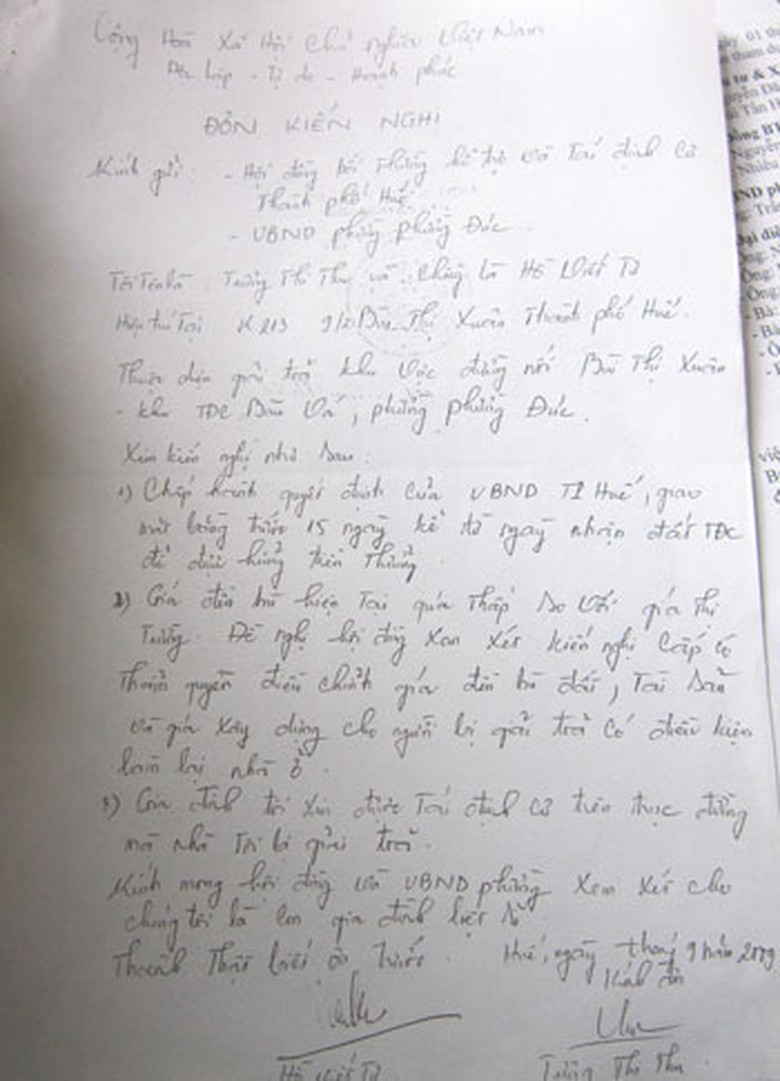 Cộng Hoà Xã Hội Chủ nghĩa Việt Nam
Độc lập - Tự do - Hạnh phúc
ĐƠN KIẾN NGHỊ
Kính gửi: - Hội đồng bồi Thường hỗ trợ và Tái định cư
Thành phố Huế
- UBND phường phường Đúc
Tôi Tên là: Trương Thị Thu và chồng là Hồ Viết Tư
Hiện trú Tại K 213 9/2 Bùi Thị Xuân Thành phố Huế.
Thuộc diện giải toả khu vực đường nối Bùi Thị Xuân
- khu TĐC Bàu Vá, phường phường Đúc.
Xin kiến nghị như sau:
1) Chấp hành quyết định của UBND TP Huế, giao
mặt bằng trước 15 ngày kể từ ngày nhận đất TĐC
để được hưởng tiền Thưởng
2) Giá đền bù hiện Tại quá Thấp so Với giá Thị
Trường. Đề nghị hội đồng xem xét kiến nghị Cấp có
Thẩm quyền điều chỉnh giá đền bù đất, Tài sản
và giá xây dựng cho người bị giải toả có điều kiện
làm lại nhà ở.
3) Gia đình tôi xin được Tái định cư trên trục đường
mà nhà Tôi bị giải toả.
Kính mong hội đồng và UBND phường xem xét cho
chúng tôi là gia đình liệt sĩ
Thành Thật biết ơn trước. Huế, ngày tháng 9 năm 2009
Kính đơn
Hồ Viết Tư Trương Thị Thu